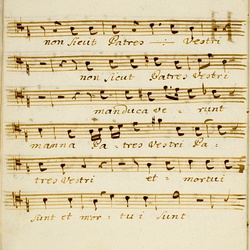 non sicut Patres Vestri
non sicut Patres Vestri
manducave - runt
manna Pa - tres Vestri Pa -
tres Vestri et - mortui
sunt et mor - tu i sunt